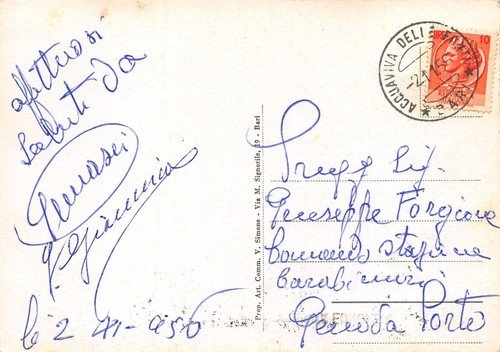 affettuosi
saluti da
Giannina
li 2
Prop. Art. Comm. V. Simone - Via M. Signorile, 19 - Bari
ACQUAVIVA DELLE FONTI
★ BARI ★
10
Giuseppe Forgione
Comando stazione
Carabinieri
Genova Porto